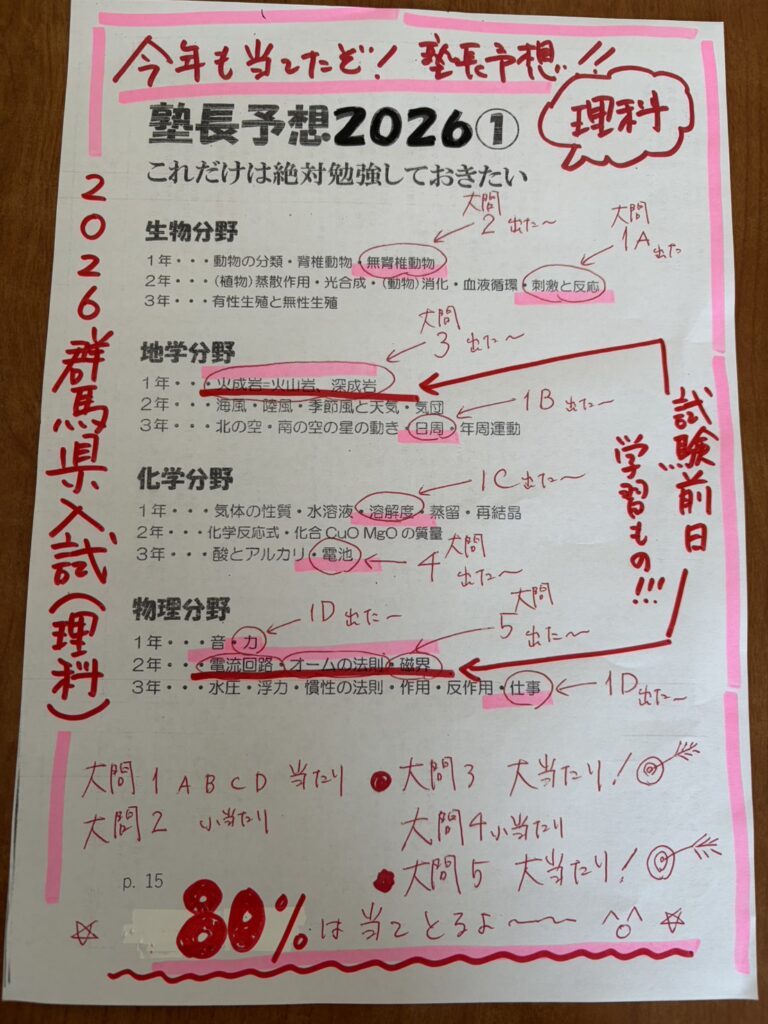 今年も当てたぞ! 塾長予想!!
理科
塾長予想2026①
これだけは絶対勉強しておきたい
2026群馬県入試(理科)
大問
2 出た〜
大問
1A 出た
生物分野
1年・・・動物の分類・脊椎動物・無脊椎動物
2年・・・(植物)蒸散作用・光合成・(動物)消化・血液循環・刺激と反応
3年・・・有性生殖と無性生殖
大問
3 出た〜
地学分野
1年・・・火成岩=火山岩、深成岩
2年・・・海風・陸風・季節風と天気・気団
1B 出た〜
3年・・・北の空・南の空の星の動き・日周・年周運動
試験前日
学習もの!!!
化学分野
1C 出た〜
1年・・・気体の性質・水溶液・溶解度・蒸留・再結晶
2年・・・化学反応式・化合CuO MgOの質量
3年・・・酸とアルカリ・電池
大問
4 出た〜
物理分野
1D 出た〜
大問
5 出た〜
1年・・・音・力
2年・・・電流回路・オームの法則・磁界
3年・・・水圧・浮力・慣性の法則・作用・反作用・仕事
1D 出た〜
大問1 A B C D 当たり
大問2 小当たり
大問3 大当たり!
大問4 小当たり
大問5 大当たり!
p. 15
80%は当てとるよ〜〜〜 ^o^